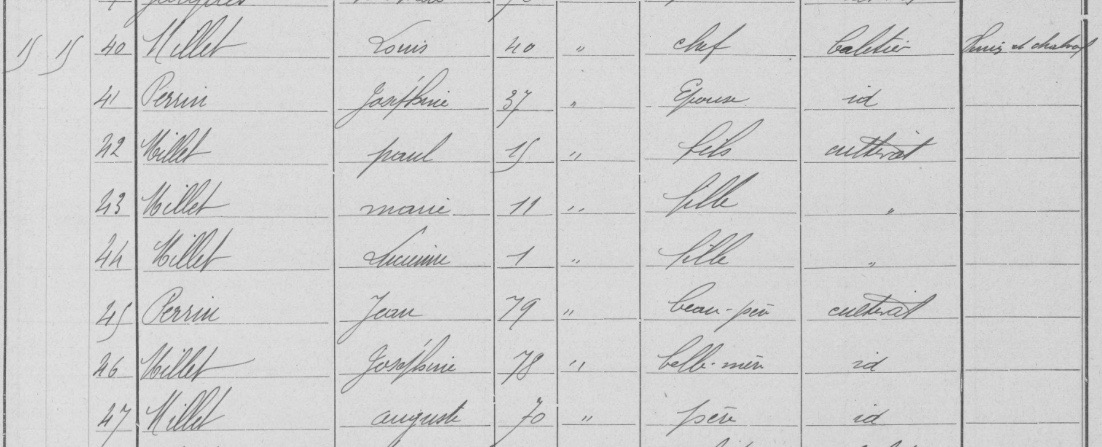 15 15 40 Millet Louis 40 " chef
41 Perrin Joséphine 37 " Epouse id
42 Millet paul 15 " fils cultivat
43 Millet marie 11 " fille "
44 Millet Lucienne 1 " fille "
45 Perrin Jean 79 " beau-père cultivat
46 Millet Joséphine 78 " belle-mère id
47 Millet auguste 70 " père id